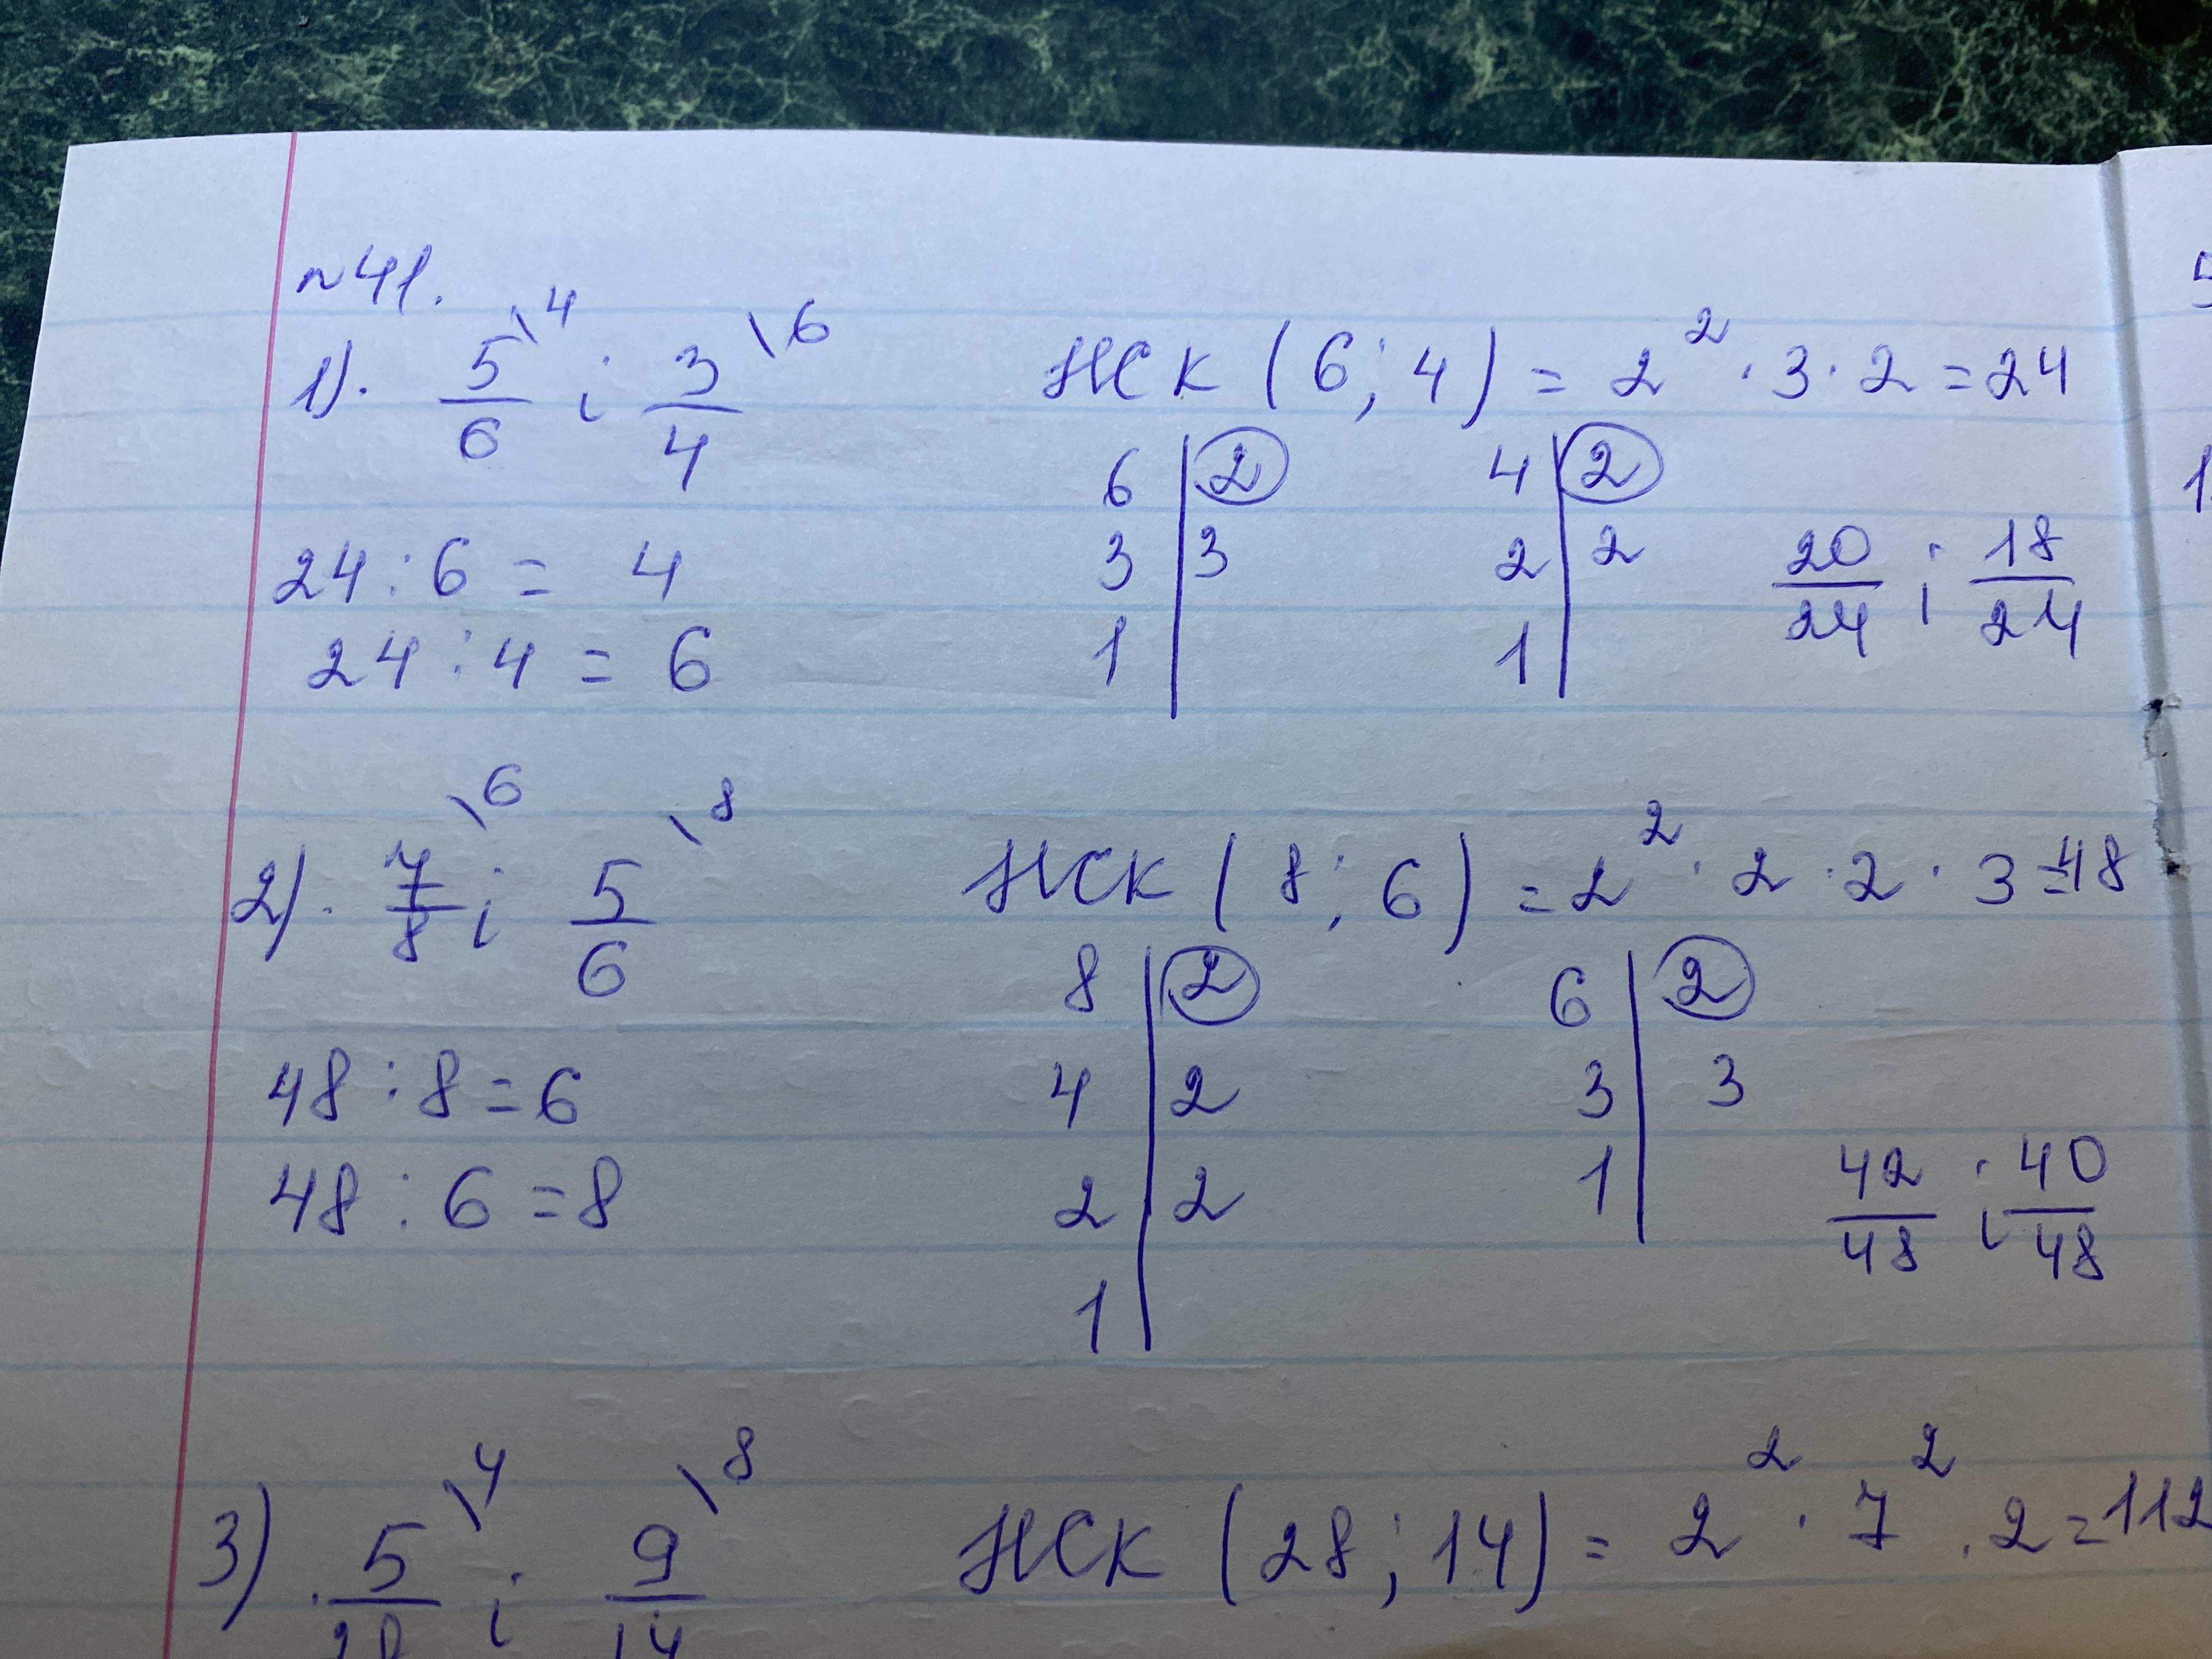 №41.
1). 5/6 \4 і 3/4 \6 НСК (6; 4) = 2² · 3 · 2 = 24
6 | 2 4 | 2
3 | 3 2 | 2
1 | 1 |
24 : 6 = 4
24 : 4 = 6
20/24 і 18/24
2). 7/8 \6 і 5/6 \8 НСК (8; 6) = 2² · 2 · 2 · 3 = 48
8 | 2 6 | 2
4 | 2 3 | 3
2 | 2 1 |
1 |
48 : 8 = 6
48 : 6 = 8
42/48 і 40/48
3) . 5/28 \4 і 9/14 \8 НСК (28; 14) = 2² · 7² · 2 = 112